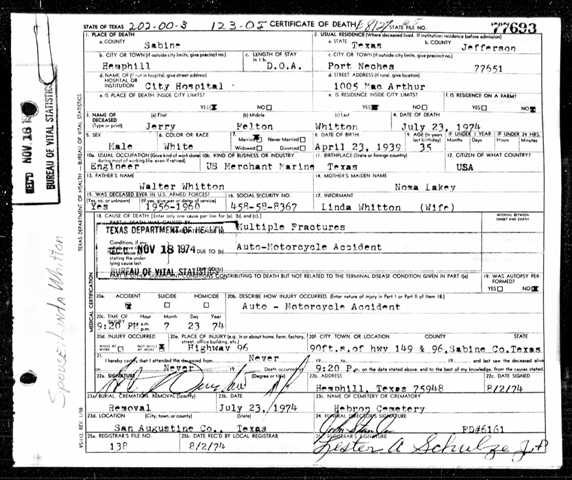 STATE OF TEXAS 202-00-3 123-05 CERTIFICATE OF DEATH STATE FILE NO. 77693
1. PLACE OF DEATH 2. USUAL RESIDENCE (Where deceased lived. If institution: residence before admission)
a. COUNTY Sabine a. STATE Texas b. COUNTY Jefferson
b. CITY OR TOWN (If outside city limits, give precinct no.) c. LENGTH OF STAY c. CITY OR TOWN (If outside city limits, give precinct no.)
Hemphill D.O.A. Port Neches 77651
d. NAME OF (If not in hospital, give street address) d. STREET ADDRESS (If rural, give location)
HOSPITAL OR INSTITUTION City Hospital 1005 Mac Arthur
e. IS PLACE OF DEATH INSIDE CITY LIMITS? e. IS RESIDENCE INSIDE CITY LIMITS? f. IS RESIDENCE ON A FARM?
YES NO YES NO YES NO
3. NAME OF DECEASED (Type or print) (a) First (b) Middle (c) Last 4. DATE OF DEATH
Jerry Felton Whitton July 23, 1974
5. SEX 6. COLOR OR RACE 7. Married Never Married 8. DATE OF BIRTH 9. AGE (In years last birthday) IF UNDER 1 YEAR IF UNDER 24 HRS.
Male White Widowed Divorced April 23, 1939 35
10a. USUAL OCCUPATION (Give kind of work done during most of working life, even if retired) 10b. KIND OF BUSINESS OR INDUSTRY 11. BIRTHPLACE (State or foreign country) 12. CITIZEN OF WHAT COUNTRY?
Engineer US Merchant Marine Texas USA
13. FATHER'S NAME 14. MOTHER'S MAIDEN NAME
Walter Whitton Noma Lakey
15. WAS DECEASED EVER IN U.S. ARMED FORCES? 16. SOCIAL SECURITY NO. 17. INFORMANT
Yes 1956-1960 458-58-8367 Linda Whitton (Wife)
18. CAUSE OF DEATH [Enter only one cause per line for (a), (b), and (c).] INTERVAL BETWEEN ONSET AND DEATH
PART I. DEATH WAS CAUSED BY: Multiple Fractures
TEXAS DEPARTMENT OF HEALTH
REC'D NOV 18 1974 DUE TO (b) Auto-Motorcycle Accident
BUREAU OF VITAL STATISTICS
CONTRIBUTING TO DEATH BUT NOT RELATED TO THE TERMINAL DISEASE CONDITION GIVEN IN PART I(a) 19. WAS AUTOPSY PERFORMED?
YES NO
20a. ACCIDENT SUICIDE HOMICIDE 20b. DESCRIBE HOW INJURY OCCURRED. (Enter nature of injury in Part I or Part II of item 18.)
Auto - Motorcycle Accident
20c. TIME OF INJURY Hour Month Day Year
9:20 PM 7 23 74
20d. INJURY OCCURRED 20e. PLACE OF INJURY (e.g. in or about home, farm, factory, street, office building, etc.) 20f. CITY TOWN OR LOCATION COUNTY STATE
Highway 96 90ft.s.of hwy 149 & 96, Sabine Co.Texas
21. I hereby certify that I attended the deceased from Never and last saw the deceased alive
Never 9:20 P.m. on the date stated above, and to the best of my knowledge, from the causes stated.
22a. SIGNATURE (Degree or title) 22b. ADDRESS 22c. DATE SIGNED
Hemphill, Texas 75948 8/2/74
23a. BURIAL, CREMATION, REMOVAL (Specify) 23b. DATE 23c. NAME OF CEMETERY OR CREMATORY
Removal July 23, 1974 Hebron Cemetery
23d. LOCATION (City, town, or county) (State) 24. FUNERAL DIRECTOR'S SIGNATURE
San Augustine Co., Texas FD#6161
25a. REGISTRAR'S FILE NO. 25b. DATE REC'D BY LOCAL REGISTRAR 25c. REGISTRAR'S SIGNATURE
138 8/2/74 Lester A Schultze J.P.
REC'D NOV 18
BUREAU OF VITAL STATISTICS
TEXAS DEPARTMENT OF HEALTH - BUREAU OF VITAL STATISTICS
MEDICAL CERTIFICATION
Spouse: Linda Whitton